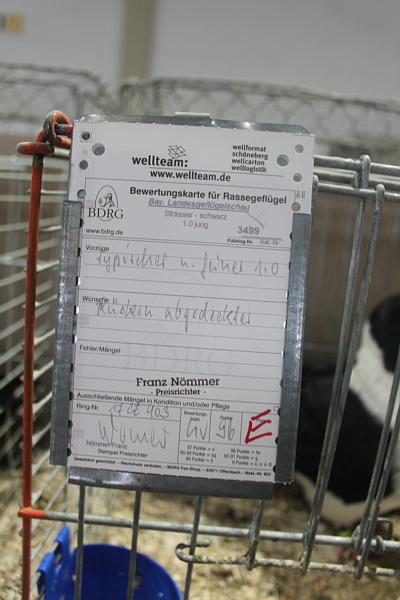 wellteam:
www.wellteam.de
wellformat
schöneberg
wellcarton
welllogistik
Bewertungskarte für Rassegeflügel
Bay. Landesgeflügelschau
Strasser - schwarz
1.0 jung
BDRG
www.bdrg.de
3499
Katalog-Nr. Käf.-Nr.
Vorzüge
typischer u. feiner 1,0
Wünsche
Rücken abgedeckter
Fehler/Mängel
Franz Nömmer
- Preisrichter -
Ausschließende Mängel in Kondition und/oder Pflege
Ring-Nr. 903
Bewertungs-
note
Punkte
hv 96 E
Nömmer Franz
Stempel Preisrichter
97 Punkte = v
96 Punkte = hv
Gesetzlich geschützt. – Nachdruck verboten. – BDRG Fan-Shop – 63071 Offenbach